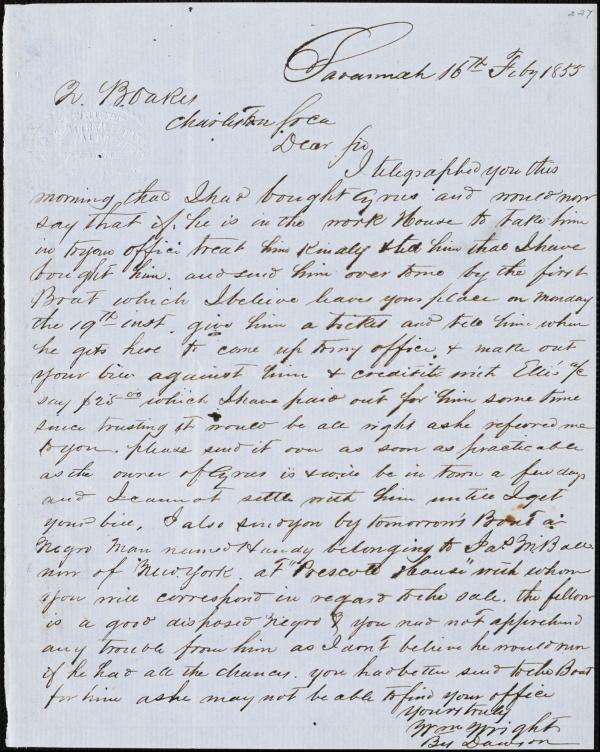 227
Savannah 16th Feby 1855
Z. B. Oakes
Charleston So Ca
Dear Sir
I telegraphed you this
morning that I had bought Cyrus and would now
say that if he is in the work House to take him
in to your office treat him kindly & tell him that I have
bought him. and send him over to me by the first
Boat which I believe leaves your place on Monday
the 19th inst. give him a ticket and tell him when
he gets here to come up to my office & make out
your bill against him & credit it with Ellis a/c
say $25.00 which I have paid out for him some time
since trusting it would be all right as he referred me
to you. please send it over as soon as practicable
as the owner of Cyrus is & will be in town a few days
and I cannot settle with him untill I get
your bill, I also send you by tomorrow's Boat a
Negro Man named Handy belonging to Jas M Ball
now of New York at "Prescott House" with whom
you will correspond in regard to the sale. the fellow
is a good disposed Negro & you need not apprehend
any trouble from him as I don't believe he would run
if he had all the chances. you had better send to the Boat
for him as he may not be able to find your office
Yours truly
Wm Wright
By Dawson